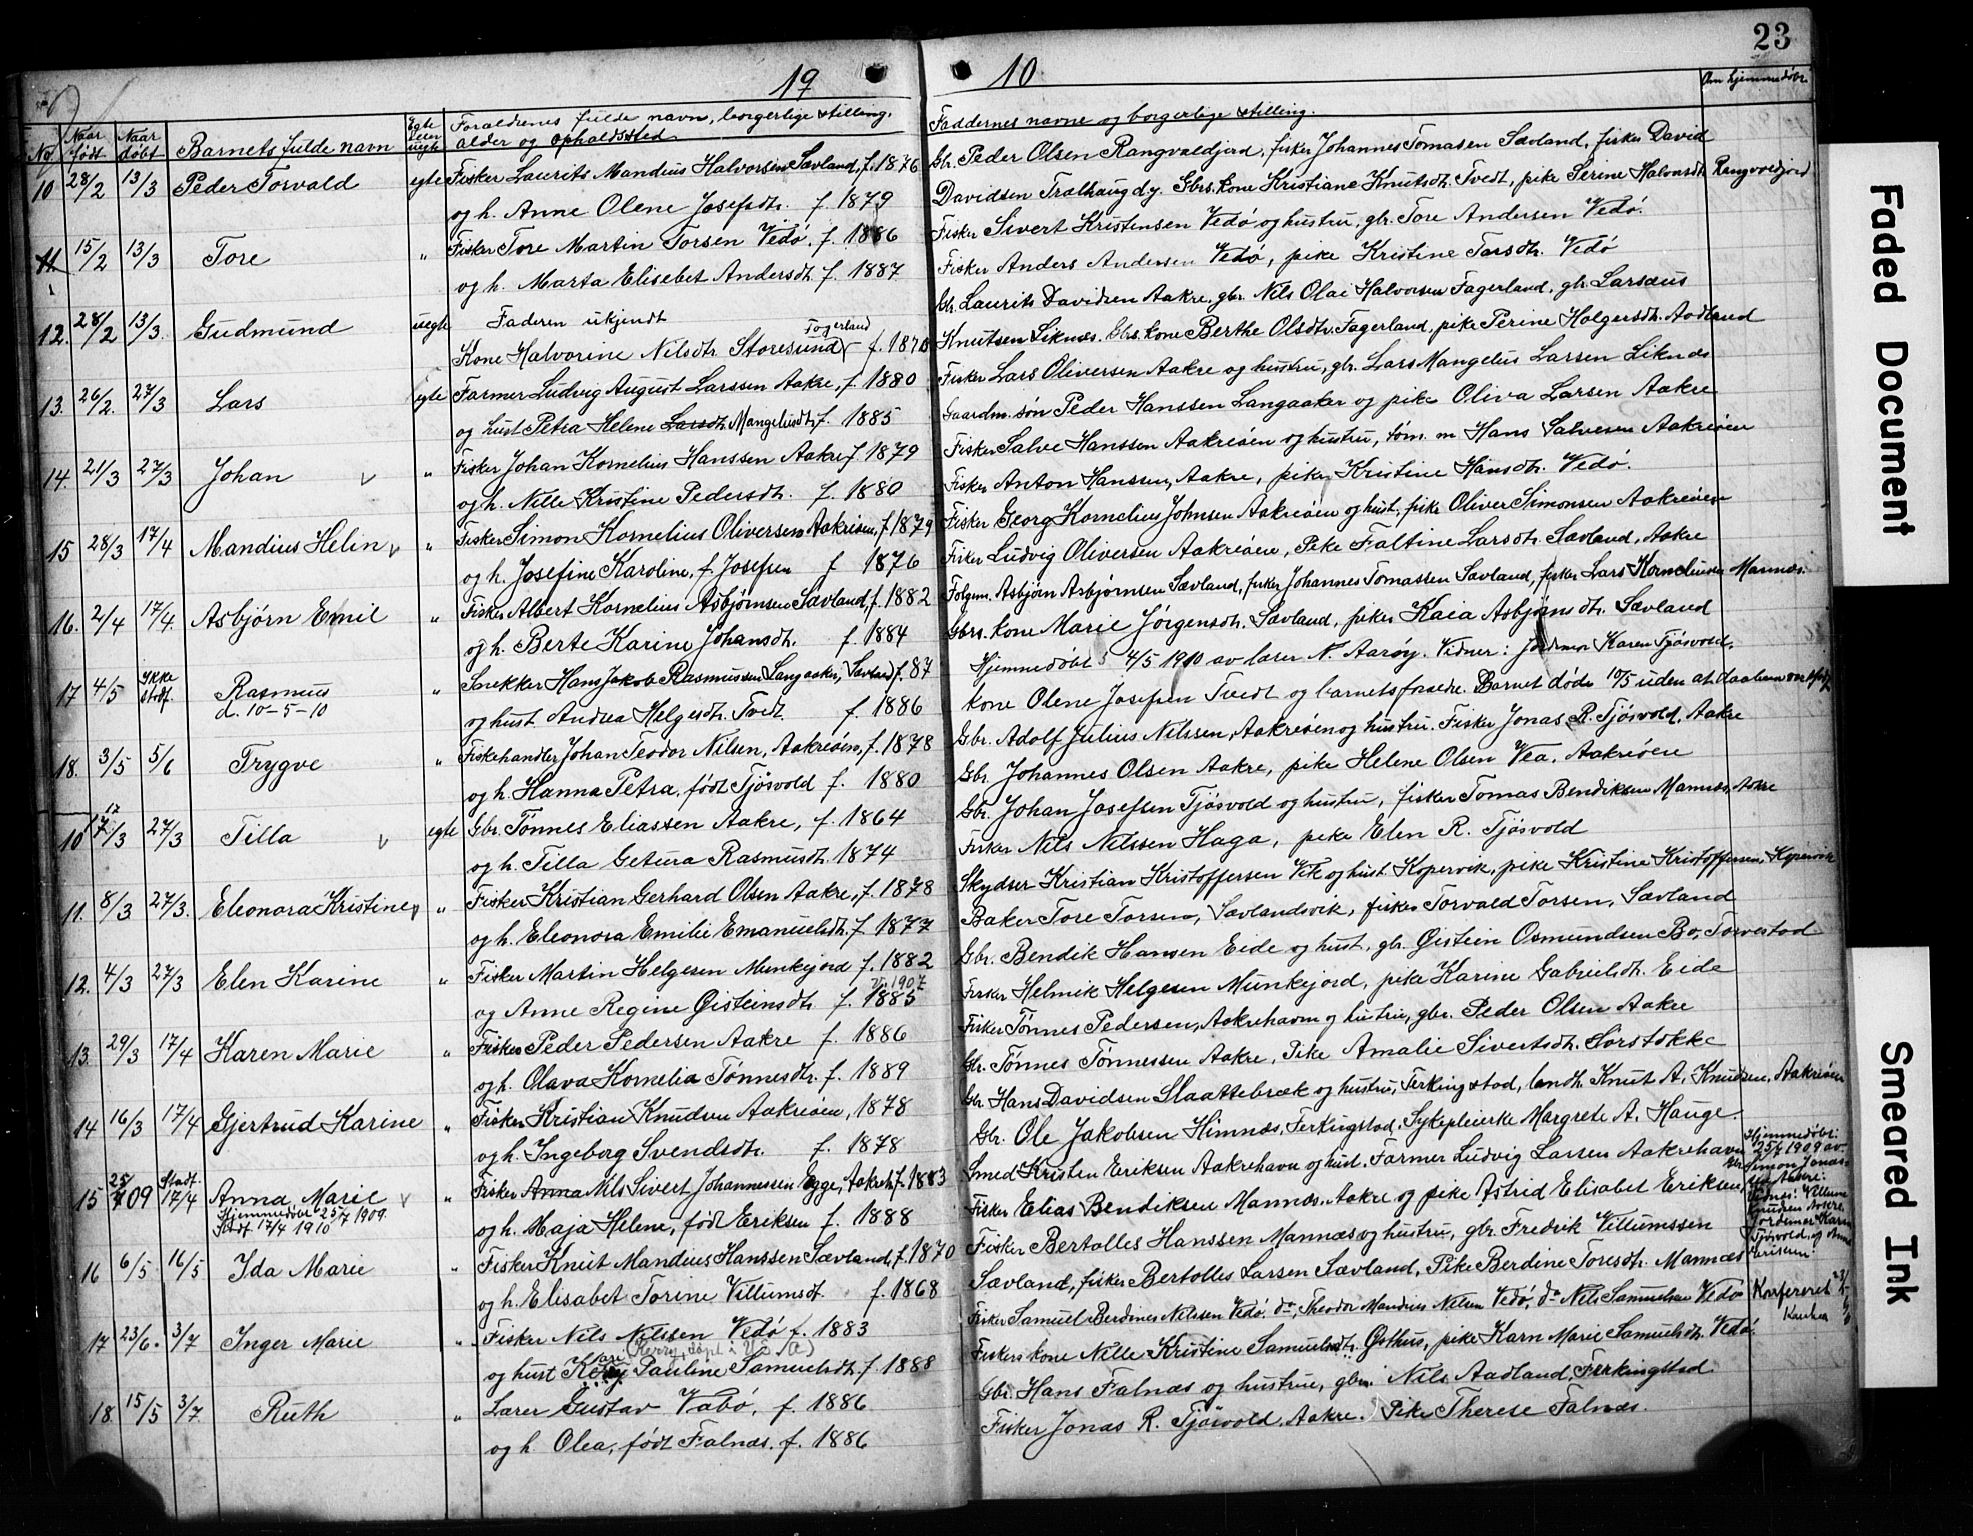 23
19 10
No.
Naar født
Naar døbt
Barnets fulde navn
Egte eller uegte
Forældrenes fulde navn, borgerlige stilling, alder og opholdssted
Faddernes navne og borgerlige stilling.
Om hjemmedøbt
10 28/2 13/3 Peder Torvald egte Fisker Laurits Mandius Halvorsen Sævland, f. 1876
og h. Anne Olene Josefsdt. f. 1879
Gbr. Peder Olsen Rangvaldjord, fisker Johannes Tomasen Sævland, fisker David
Davidsen Trælhaug d.y. Gbrs. kone Kristiane Knutsdt. Tvedt, pike Serine Halvorsdt. Rangvoldjord
11 15/2 13/3 Tore " Fisker Tore Martin Torsen Vedø, f. 1886
og h. Marta Elisebet Andersdt. f. 1887
Fisker Sivert Kristensen Vedø og hustru, gbr. Tore Andersen Vedø.
Fisker Anders Andersen Vedø, pike Kristine Torsdt. Vedø
12. 28/2 13/3. Gudmund uegte Faderen ukjendt
Kone Halvorine Nilsdt. Storesund Fagerland f. 1878
Gbr. Laurits Davidsen Aakre, gbr. Nils Olai Halvorsen Fagerland, gbr. Larsæus
Knutsen Liknæs. Gbrs. kone Berthe Olsdtr. Fagerland, pike Perine Holgersdt. Aadland
13. 26/2. 27/3 Lars egte Farmer Ludvig August Larssen Aakre, f. 1880
og hust Petra Helene Larsdt. Mangelusdt. f. 1885
Fisker Lars Oliversen Aakre og hustru, gbr. Lars Mangelus Larsen Liknæs
Gaardm. søn Peder Hanssen Langaaker og pike Oliva Larsen Aakre
14. 21/3 27/3 Johan v " Fisker Johan Kornelius Hanssen Aakre f. 1879
og h. Nille Kristine Pedersdt. f. 1880
Fisker Salve Hanssen Aakreøen og hustru, tøm. m Hans Salvesen Aakreøen
Fisker Anton Hanssen, Aakre, pike Kristine Hansdt. Vedø.
15 28/3 17/4 Mandius Helin v " Fisker Simon Kornelius Oliversen Aakreøen, f. 1879
og h. Josefine Karoline, f. Josefsen f 1876
Fisker Georg Kornelius Johnsen Aakreøen og hust, pike Oliver Simonsen Aakreøen
Fisker Ludvig Oliversen Aakreøen, Pike Faltine Larsdt. Sævland, Aakre
16. 2/4 17/4. Asbjørn Emil " Fisker Albert Kornelius Asbjørnsen Sævland, f. 1882
og h. Berte Karine Johansdt. f. 1884
Folgem. Asbjørn Asbjørnsen Sævland, fisker Johannes Tomassen Sævland, fisker Lars Korneliusen Mannes.
Gbrs. kone Marie Jørgensdt. Sævland, pike Kaia Asbjørnsdt. Sævland
17 4/5 Ikke stadf. Rasmus " Snekker Hans Jakob Rasmussen Langaaker, Sævland f. 87
d. 10-5-10
og hust Andrea Helgesdt. Tvedt. f. 1886
Hjemmedøbt 4/5 1910 av lærer N. Aarøy. Vidner: jordmor Karen Tjøsvold,
kone Olene Josefsen Tvedt og barnets forældre. Barnet døde 10/5 uden at daaben var stadf.
18. 3/5 5/6 Trygve " Fiskehandler Johan Teodor Nilsen, Aakreøen, f. 1878
og h. Hanna Petra, født Tjøsvold f. 1880
Gbr. Adolf Julius Nilssen, Aakreøen og hustru. Fisker Jonas R. Tjøsvold, Aakre
Gbr. Johannes Olsen Aakre, pike Helene Olsen Vea. Aakreøen
10 17/3 27/3 Tilla v egte Gbr. Tønnes Eliassen Aakre, f. 1864
og h. Tilla Getura Rasmusdt. 1874
Gbr. Johan Josefsen Tjøsvold og hustru, fisker Tomas Bendiksen Mannes, Aakre
Fisker Nils Nilssen Haga, pike Elen R. Tjøsvold
11. 8/3 27/3. Eleonora Kristine v " Fisker Kristian Gerhard Olsen Aakre, f. 1878
og h. Eleonora Emilie Emanuelsdt. f. 1877
Skydser Kristian Kristoffersen Vik og hust. Kopervik, pike Kristine Kristoffersen, Kopervik
Baker Tore Torsen, Sævlandsvik, fisker Torvald Torsen, Sævland
12. 4/3 27/3 Elen Karine " Fisker Martin Helgesen Munkejord f. 1882
og Anne Regine Øisteinsdt. f. 1885
Gbr. Bendik Hansen Eide og hust, gbr. Øistein Osmundsen Bø, Torvestad
Fisker Helmik Helgesen Munkejord, pike Karine Gabrielsdt. Eide
13. 29/3 17/4 Karen Marie " Fisker Peder Pedersen Aakre f. 1886
og h. Olava Kornelia Tønnesdt. f. 1889
Fisker Tønnes Pedersen, Aakrehavn og hustru, gbr. Peder Olsen Aakre
Gbr. Tønnes Tønnessen Aakre, Pike Amalie Sivertsdt. Sørstokke
14 16/3 17/4 Gjertrud Karine " Fisker Kristian Knudsen Aakreøen, 1878
og h. Ingeborg Svendsdt. f. 1878
Gbr. Hans Davidsen Slaattebræk og hustru, Ferkingstad, landh. Knut A. Knudsen, Aakreøen
Gbr. Ole Jakobsen Himnæs, Ferkingstad, Sykepleierske Margrete A. Hauge.
15 25/7 09 Stadf. 17/4 Anna Marie v " Fisker Anna Nils Sivert Johannessen Egge, Aakreh. f. 1883
Hjemmedøbt 25/7 1909.
Stadf. 17/4 1910
og h. Maja Helene, født Eriksen f. 1888
Smed Kristen Eriksen Aakrehavn og hust. Farmer Ludvig Larsen Aakrehavn
Fisker Elias Bendiksen Mannes, Aakre og pike Astrid Elisabet Eriksen
Hjemmedøbt:
25/7 1909 av
Simon Jonas-
Vidnes: Villum
Knudsen Aakre
Jordemor Karen
Tjøsvold, og Anna
16 6/5. 16/5 Ida Marie " Fisker Knut Mandius Hanssen Sævland, f. 1870
og h. Elisabet Torine Villumsdt. f. 1868
Fisker Bertolles Hanssen Mannæs og hustru, gbr. Fredrik Villumssen
Sævland, fisker Bertolles Larsen Sævland, Pike Berdine Toresdt. Mannæs
17 23/6. 3/7 Inger Marie " Fisker Nils Nilssen Vedø f. 1883
(Kerry, døpt i U.S.A.)
og hust Pauline Samuelsdt. f. 1888
Fisker Samuel Berdines Nilssen Vedø, do, Theodor Mandius Nilsen Vedø, do Nils Samuelsen Vedø
Fiskers kone Nille Kristine Samuelsdt. Østhus, pike Karn Marie Samuelsdt. Vedø.
Konfereret
18. 15/5 3/7. Ruth " Lærer Gustav Vabø, f. 1886
og h. Olea, født Falnæs. f. 1886
Gbr. Hans Falnæs og hustru, gbr. Nils Aadland, Ferkingstad
Fisker Jonas R. Tjøsvold, Aakre. Pike Therese Falnæs.
Faded Document
Smeared Ink